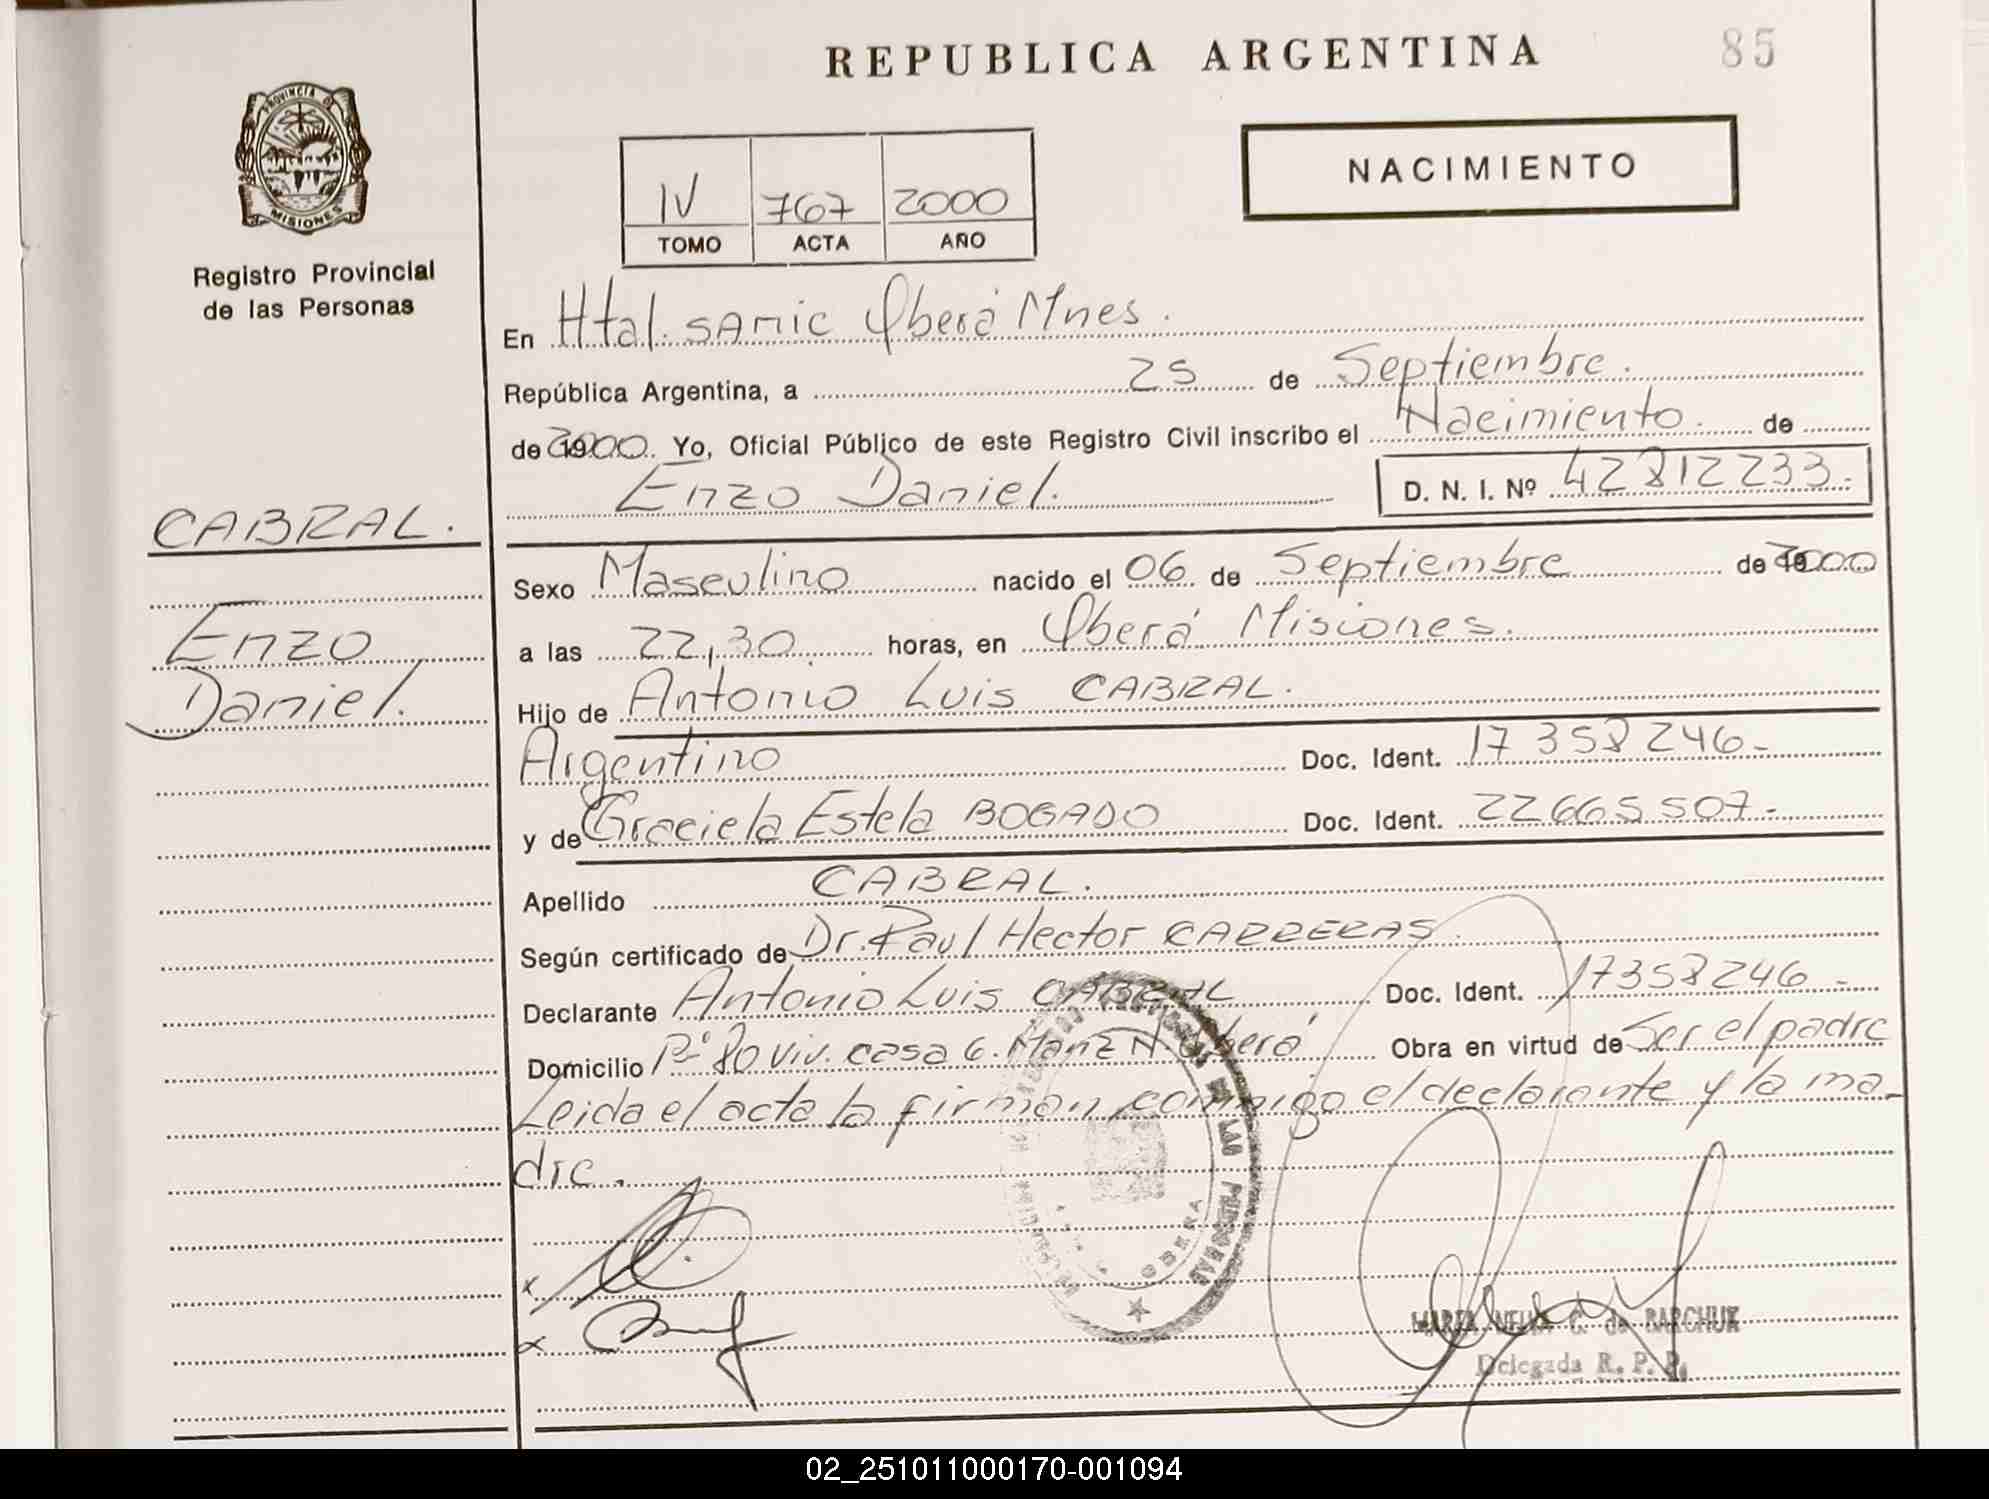 REPUBLICA ARGENTINA
85
PROVINCIA DE
MISIONES
Registro Provincial
de las Personas
IV 767 2000
TOMO ACTA AÑO
NACIMIENTO
En Htal. SAMIC Oberá Mnes.
República Argentina, a 25 de Septiembre.
de 2000. Yo, Oficial Público de este Registro Civil inscribo el Nacimiento de
Enzo Daniel. D. N. I. Nº 42812233.-
CABRAL.
Enzo
Daniel.
Sexo Masculino nacido el 06 de Septiembre de 2000
a las 22,30 horas, en Oberá Misiones.
Hijo de Antonio Luis CABRAL.
Argentino Doc. Ident. 17358246-
y de Graciela Estela BOGADO Doc. Ident. 22665507.-
Apellido CABRAL.
Según certificado de Dr. Raul Hector CARRERAS.
Declarante Antonio Luis CABRAL Doc. Ident. 17358246-
Domicilio Bº 80 viv. casa 6. Manz N. Oberá Obra en virtud de Ser el padre
Leida el acta la firman conmigo el declarante y la ma-
dre.
DE LAS PERSONAS
OBERA
MARIA NELIA C. de BARCHUK
Delegada R. P. P.
02_251011000170-001094